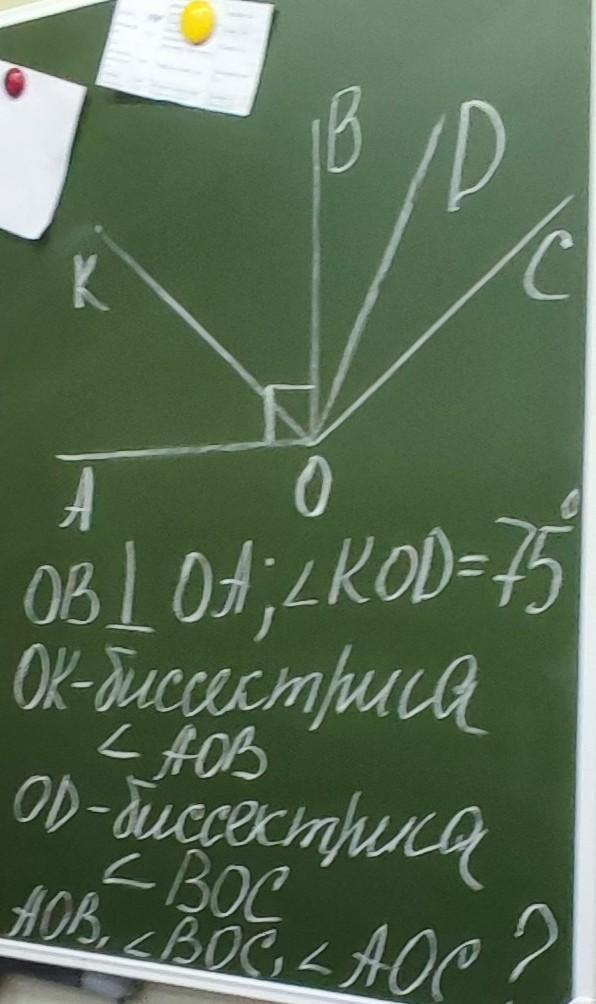 B
D
K
C
A
O
OB ⊥ OA; ∠KOD = 75°
OK - биссектриса
∠ AOB
OD - биссектриса
∠ BOC
AOB, ∠BOC, ∠AOC ?